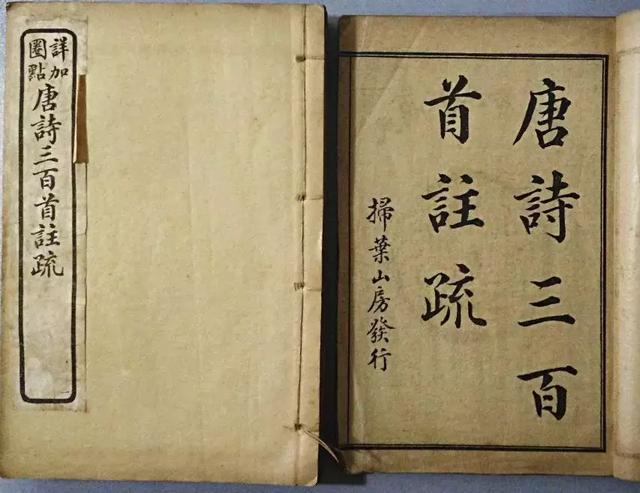 詳加
圈點
唐詩三百首註疏
唐詩三百
首註疏
掃葉山房發行